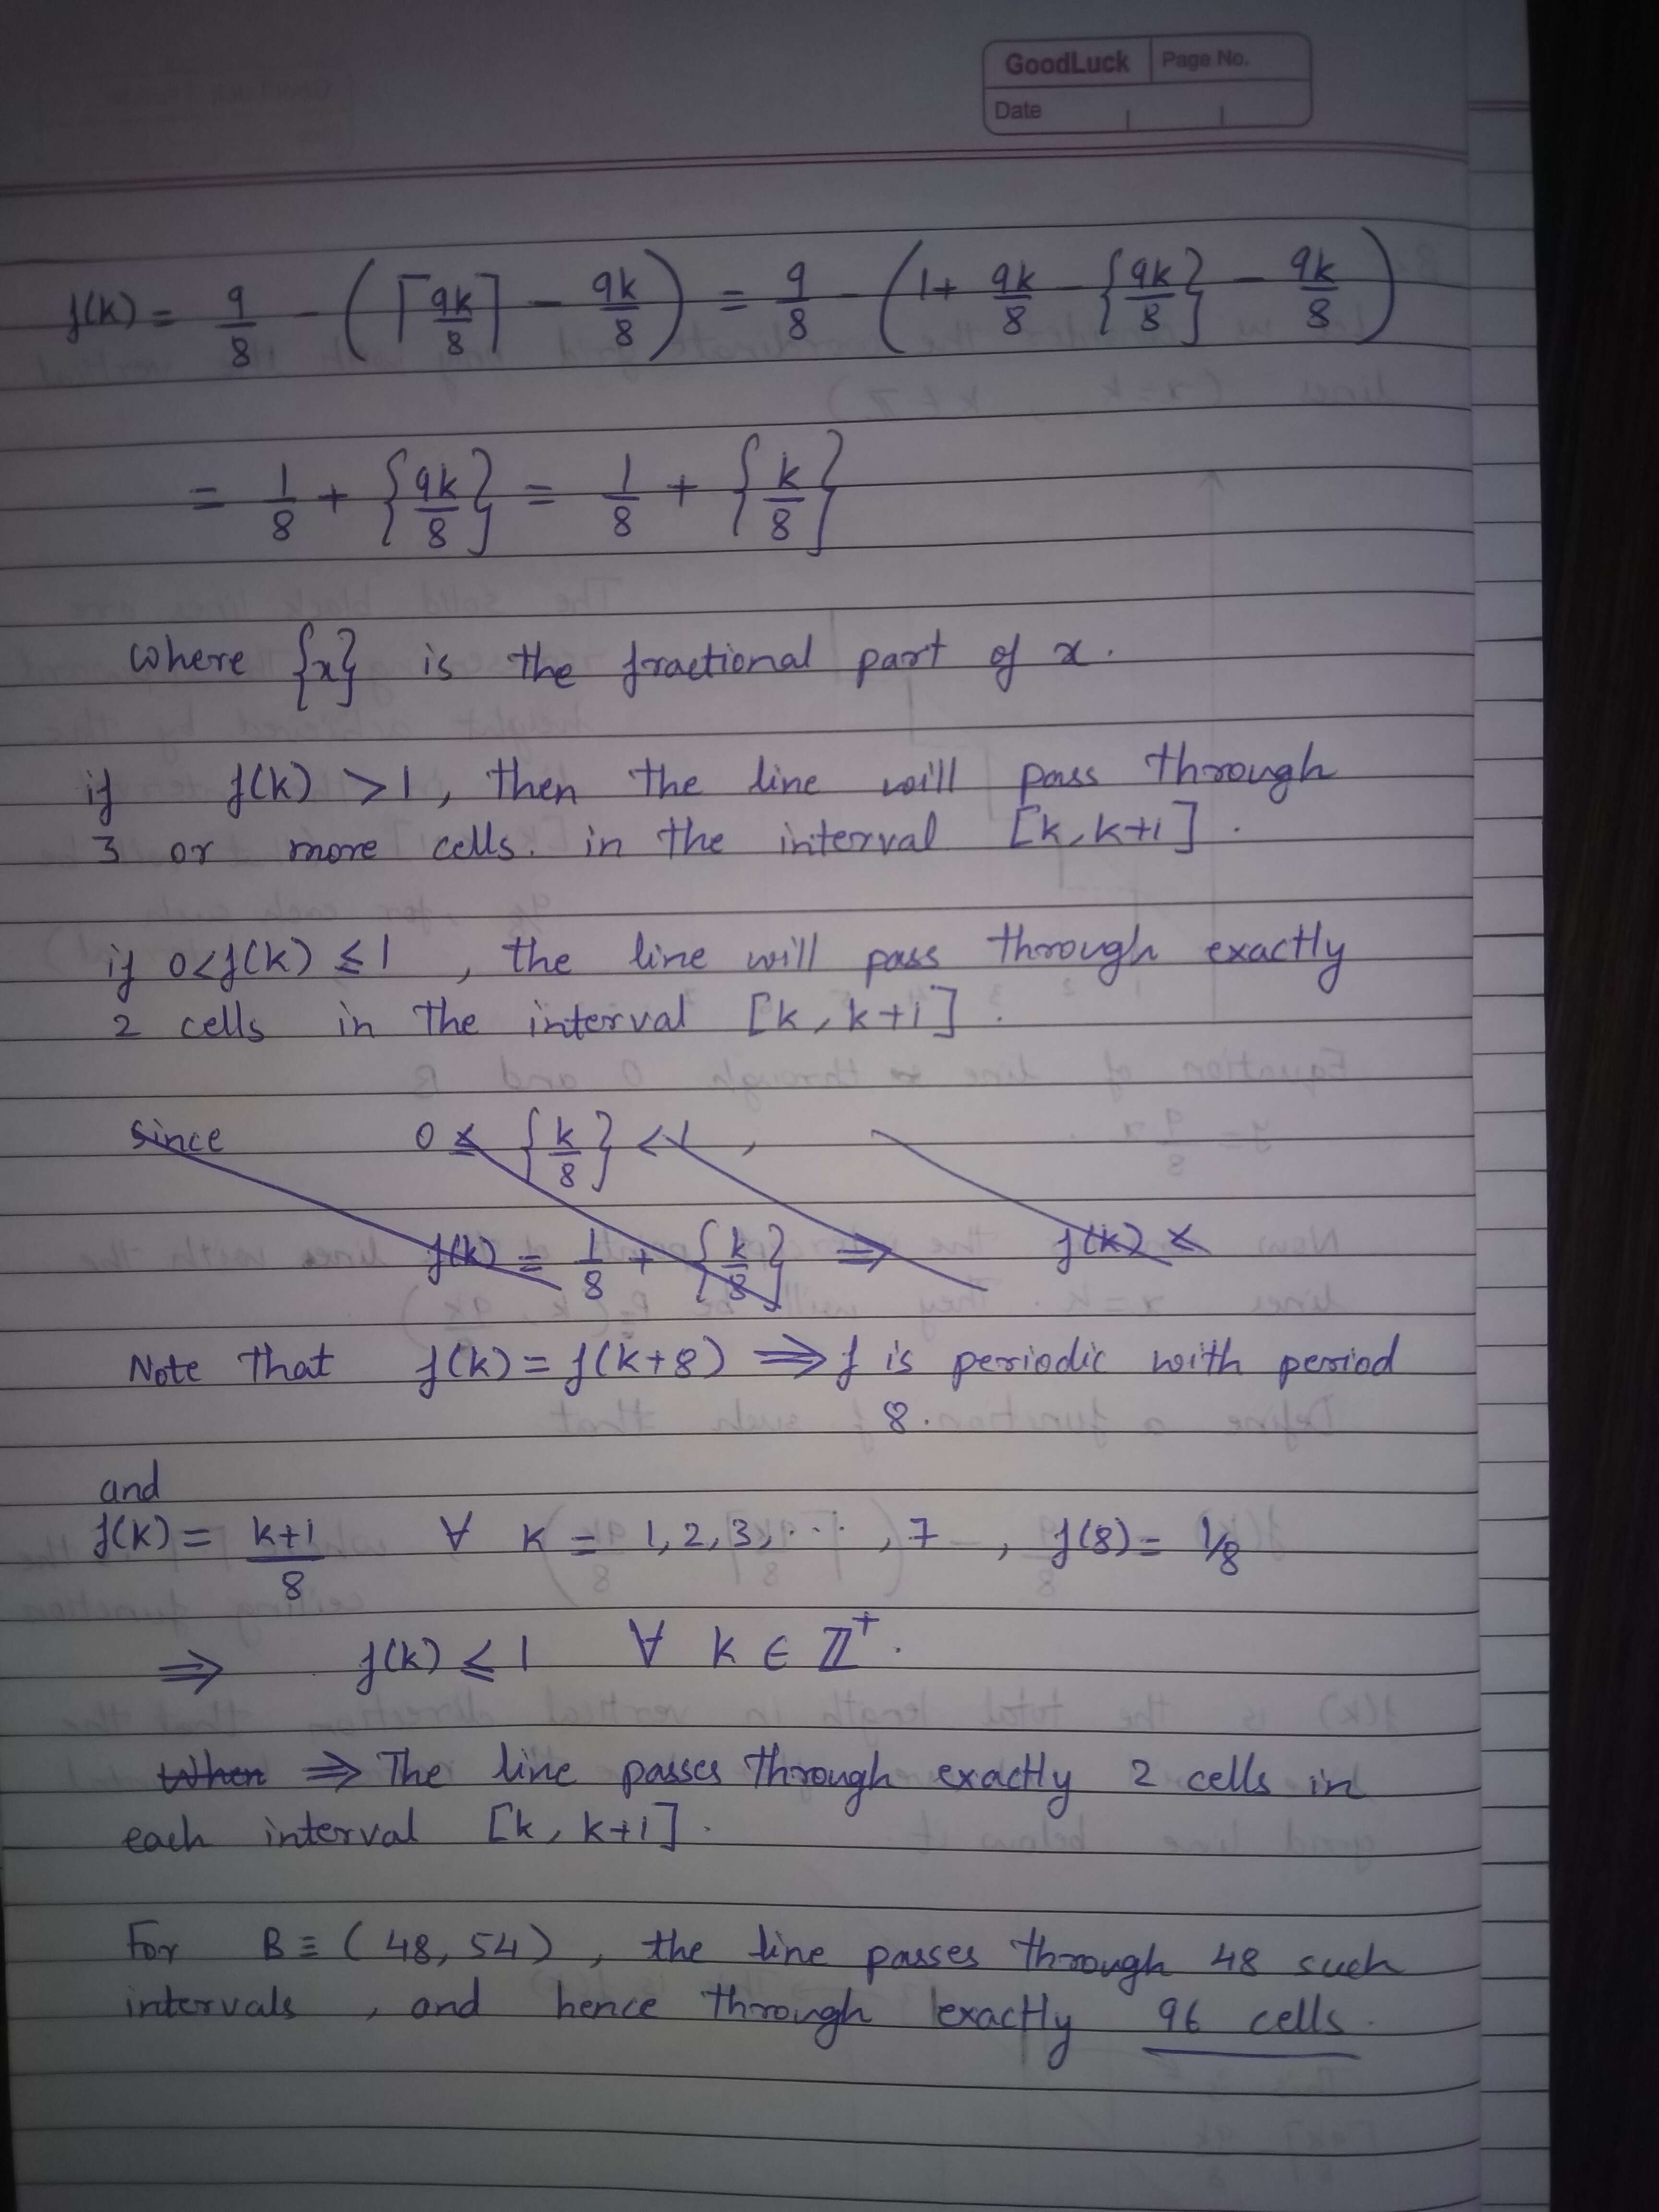 GoodLuck Page No.
Date
f(k) = 9/8 - (⌈9k/8⌉ - 9k/8) = 9/8 - (1 + 9k/8 - {9k/8} - 9k/8)
= 1/8 + {9k/8} = 1/8 + {k/8}
where {x} is the fractional part of x.
if f(k) > 1, then the line will pass through
3 or more cells. in the interval [k, k+1].
if 0 < f(k) ≤ 1, the line will pass through exactly
2 cells in the interval [k, k+1].
since 0 ≤ {k/8} < 1,
f(k) = 1/8 + {k/8} ⇒ f(k) <
Note that f(k) = f(k+8) ⇒ f is periodic with period
8.
and
f(k) = k+1/8 ∀ k = 1, 2, 3, ..., 7, f(8) = 1/8
⇒ f(k) ≤ 1 ∀ k ∈ ℤ⁺.
When ⇒ The line passes through exactly 2 cells in
each interval [k, k+1].
For B ≡ (48, 54), the line passes through 48 such
intervals, and hence through exactly 96 cells.